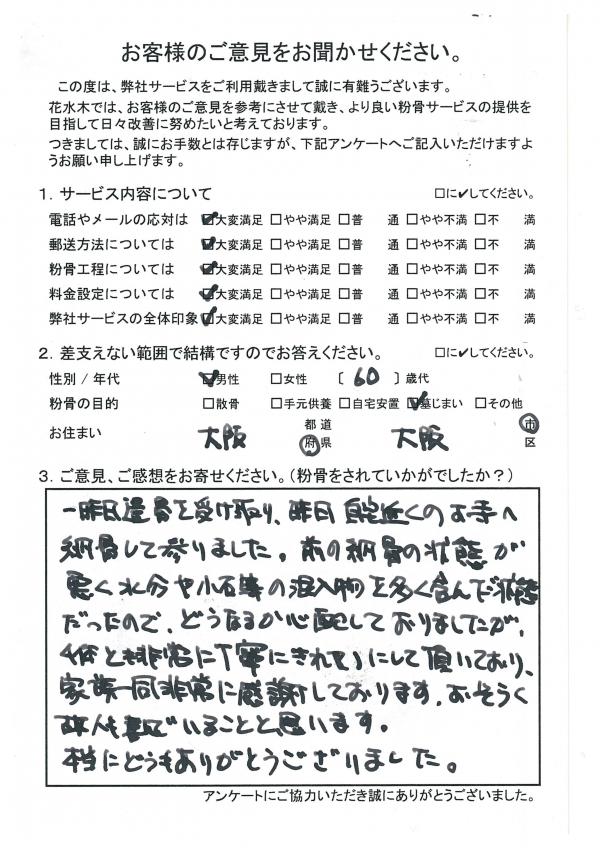 お客様のご意見をお聞かせください。
この度は、弊社サービスをご利用戴きまして誠に有難うございます。
花水木では、お客様のご意見を参考にさせて戴き、より良い粉骨サービスの提供を
目指して日々改善に努めたいと考えております。
つきましては、誠にお手数とは存じますが、下記アンケートへご記入いただけますよ
うお願い申し上げます。
1．サービス内容について □に✓してください。
電話やメールの応対は ☑大変満足 □やや満足 □普　通 □やや不満 □不　満
郵送方法については ☑大変満足 □やや満足 □普　通 □やや不満 □不　満
粉骨工程については ☑大変満足 □やや満足 □普　通 □やや不満 □不　満
料金設定については ☑大変満足 □やや満足 □普　通 □やや不満 □不　満
弊社サービスの全体印象 ☑大変満足 □やや満足 □普　通 □やや不満 □不　満
2．差支えない範囲で結構ですのでお答えください。 □に✓してください。
性別 / 年代 ☑男性 □女性 〔 60 〕歳代
粉骨の目的 □散骨 □手元供養 □自宅安置 ☑墓じまい □その他
お住まい 大阪 都道府県 大阪 市区
3．ご意見、ご感想をお寄せください。（粉骨をされていかがでしたか？）
一昨日遺骨を受け取り、昨日自宅近くのお寺へ
納骨して参りました。前の納骨の状態が
悪く水分や小石等の混入物を多く含んだ状態
だったので、どうなるか心配しておりましたが、
何とも非常に丁寧にきれいにして頂いており、
家族一同非常に感謝しております。おそらく
故人も喜んでいることと思います。
本当にどうもありがとうございました。
アンケートにご協力いただき誠にありがとうございました。